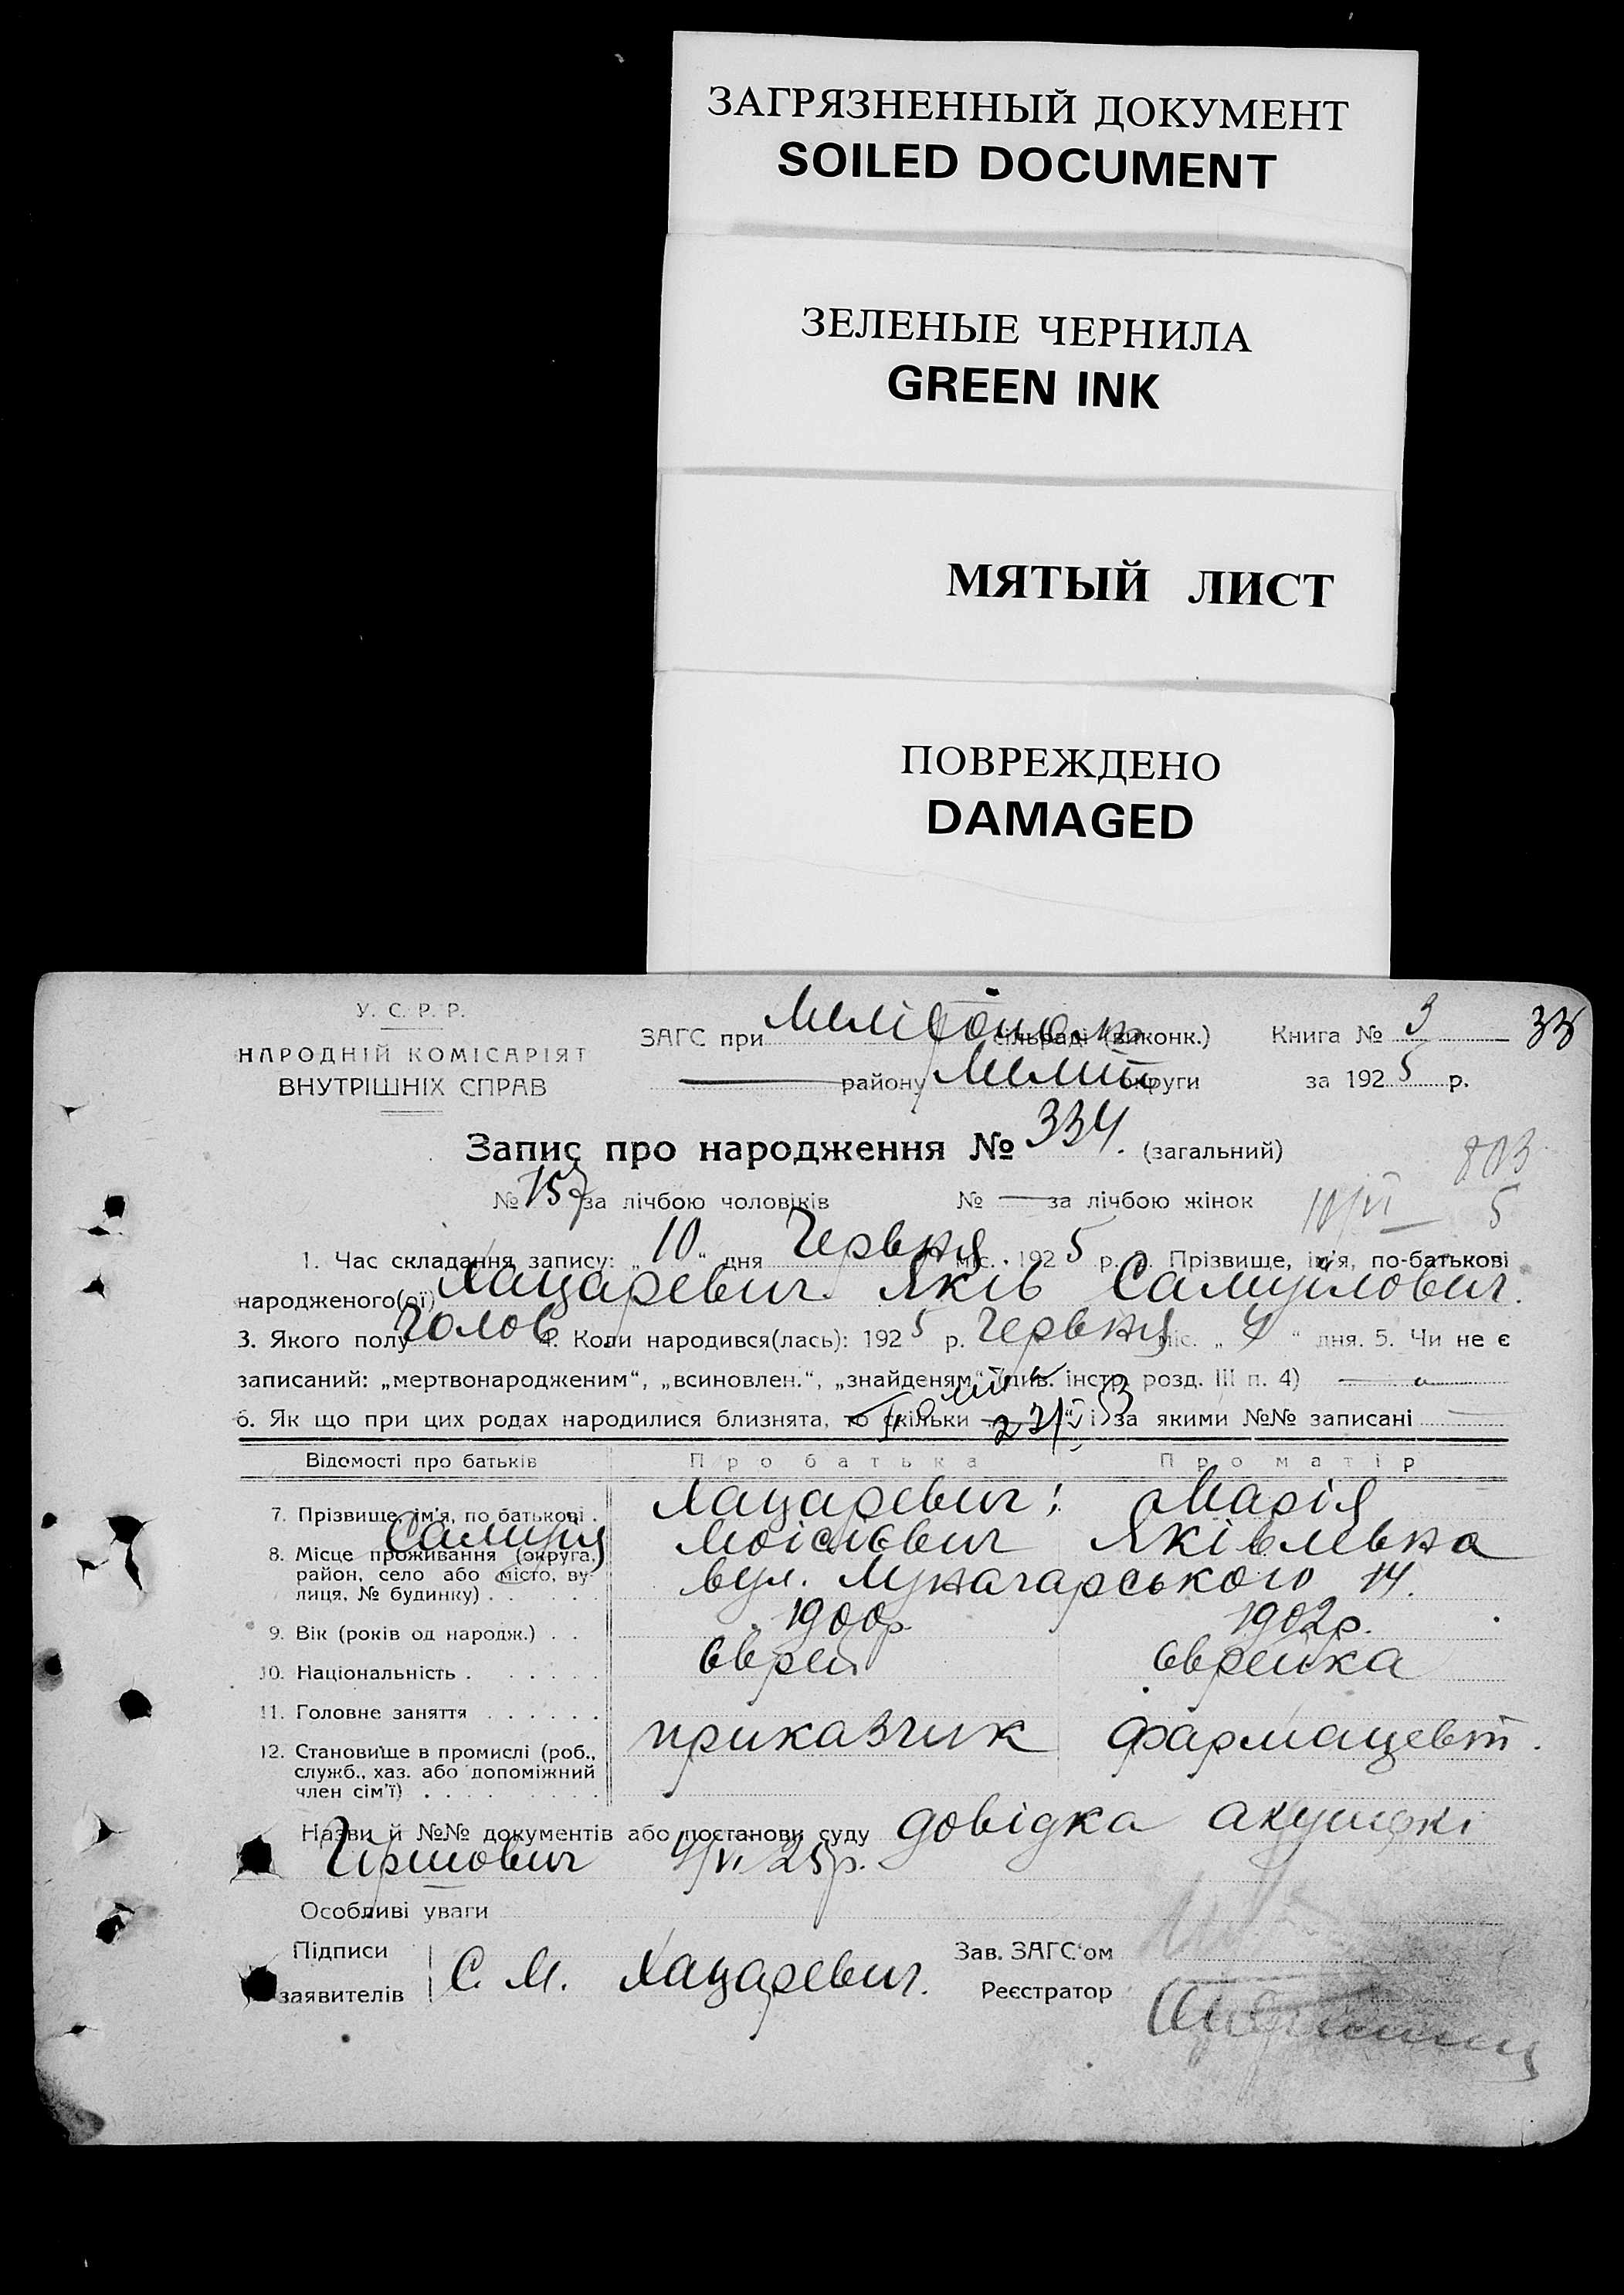 ЗАГРЯЗНЕННЫЙ ДОКУМЕНТ
SOILED DOCUMENT
ЗЕЛЕНЫЕ ЧЕРНИЛА
GREEN INK
МЯТЫЙ ЛИСТ
ПОВРЕЖДЕНО
DAMAGED
У. С. Р. Р.
НАРОДНІЙ КОМІСАРІЯТ
ВНУТРІШНІХ СПРАВ
ЗАГС при сільраді (виконк.) Книга № 3
району Меліт округи за 1925 р.
Запис про народження № 334. (загальний)
803
№ 157 за лічбою чоловіків № — за лічбою жінок
10/VI 5
1. Час складання запису: „10" дня Червня міс. 1925 р. 2. Прізвище, ім'я, по-батькові
народженого(ої) Хацаревич Яків Самуїлович.
3. Якого полу Чолов 4. Коли народився(лась): 1925 р. Червня міс. „4" дня. 5. Чи не є
записаний: „мертвонародженим", „всиновлен.", „знайденям" (див. інстр. розд. III п. 4) —
6. Як що при цих родах народилися близнята, то скільки і за якими №№ записані —
Відомості про батьків Про батька Про матір
7. Прізвище, ім'я, по батькові . Хацаревич Марія
Самуїл Моісеєвич Яківлевна
8. Місце проживання (округа, район, село або місто, вулиця, № будинку) . . вул. Луначарського 14.
9. Вік (років од народж.) . . 1900р. 1902р.
10. Національність . . . . . Єврей Єврейка
11. Головне заняття . . . . . .
приказчик фармацевт.
12. Становище в промислі (роб.,
служб., хаз. або допоміжний
член сім'ї) . . . . . . . .
Назви й №№ документів або постанови суду довідка акушерки
Гіршович 4/VI 25р.
Особливі уваги
Підписи
заявителів С. М. Хацаревич.
Зав. ЗАГС'ом
Реєстратор